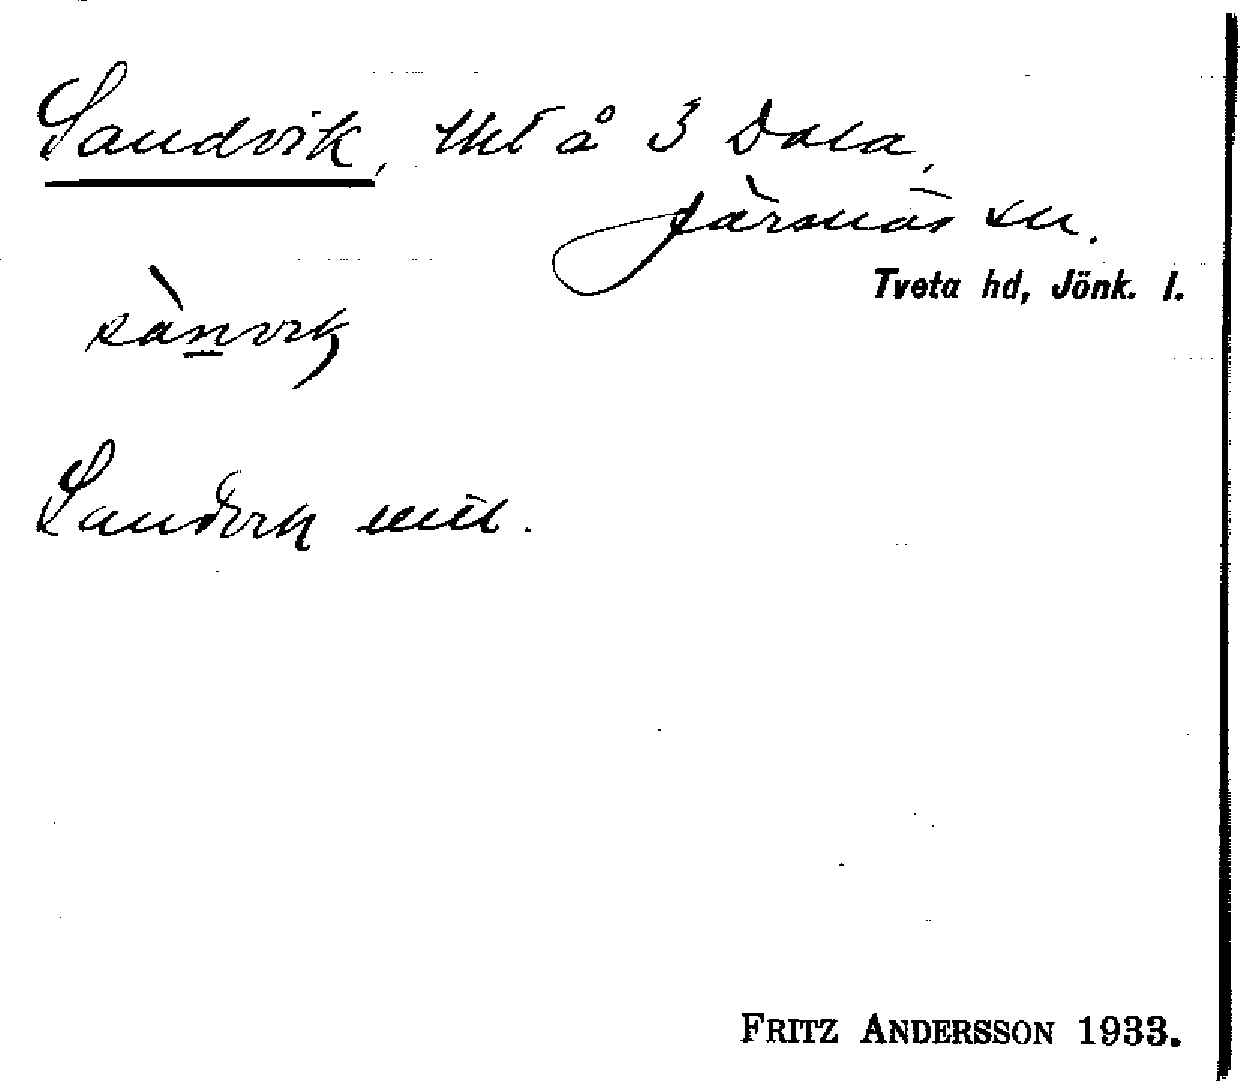 Sandvik, tht å 3 Dala,
Järsnäs sn.
Tveta hd, Jönk. l.
sànvik
Sandvik
FRITZ ANDERSSON 1933.